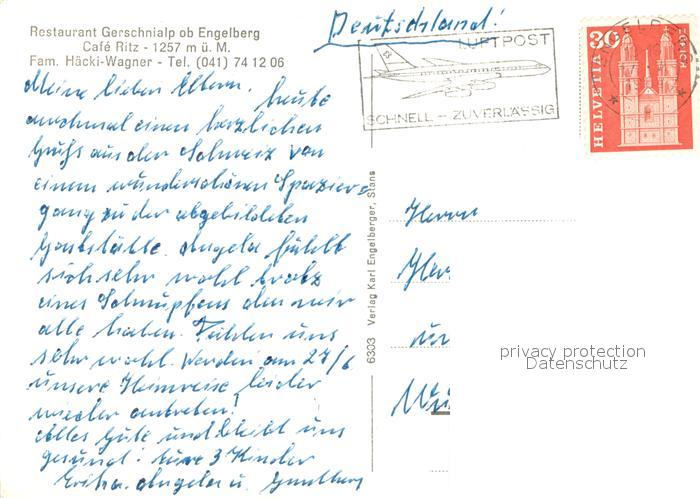 Deutschland!
Restaurant Gerschnialp ob Engelberg
Café Ritz - 1257 m ü. M.
Fam. Häcki-Wagner - Tel. (041) 74 12 06
LUFTPOST
SCHNELL - ZUVERLÄSSIG
30
HELVETIA
ZÜRICH
Meine lieben Eltern, heute
nochmal einen herzlichen
Gruß aus der Schweiz von
einem wunderschönen Spazier-
gang zu der abgebildeten
Gaststätte. Angela fühlt
sich sehr wohl trotz
eines Schnupfens den wir
alle haben. Fühlen uns
sehr wohl. Werden am 27/6
unsere Heimreise leider
wieder antreten!
Alles Gute und bleibt uns
gesund! Eure 3 Kinder
Erika, Angela u.
6303 Verlag Karl Engelberger, Stans
Herrn
privacy protection
Datenschutz